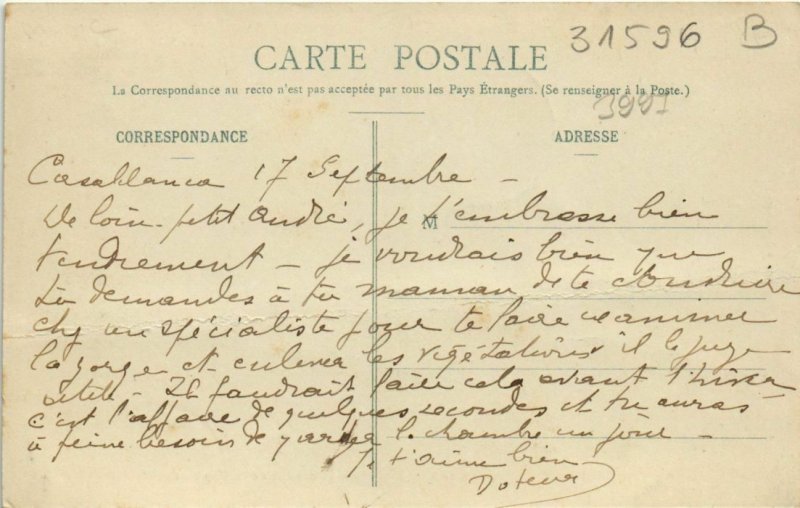 31596 B
CARTE POSTALE
La Correspondance au recto n'est pas acceptée par tous les Pays Étrangers. (Se renseigner à la Poste.)
3991
CORRESPONDANCE
ADRESSE
M
Casablanca 17 Septembre –
De loin petit André, je t'embrasse bien
tendrement – je voudrais bien que
tu demandes à ta maman de te conduire
chez un spécialiste pour te faire examiner
la gorge et enlever les végétations s'il le juge
utile – Il faudrait faire cela avant l'hiver
c'est l'affaire de quelques secondes et tu auras
à peine besoin de garder la chambre un jour –
Je t'aime bien